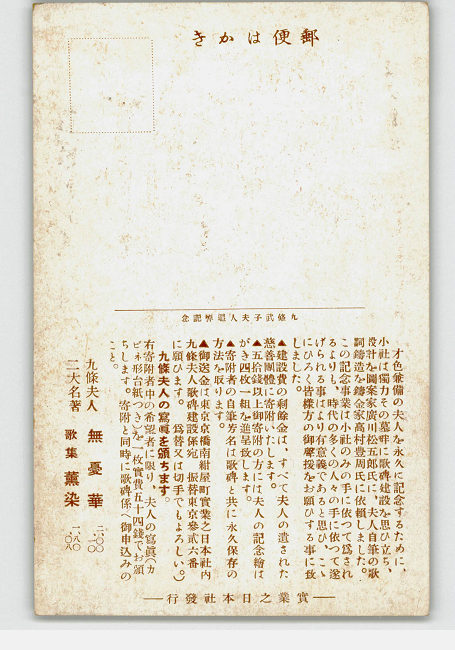 郵便はかき
九條武子夫人追悼記念
才色兼備の夫人を永久に記念するために、
小社は獨力その墓畔に歌碑建設を思ひ立ち、
設計を圖案家廣川松五郎氏に、夫人自筆の歌
詞鑄造を鑄金家高村豊周氏に依賴しました。
この記念事業は小社のみの手に依つて爲され
るよりも、時代の多くの人々の手に依つて遂
げられる事はより有意義であると思ひ、こゝ
にひろく皆樣方の御聲援をお願ひする事に致
しました。
▲建設費の剰餘金は、すべて夫人の遺された
慈善團體に寄附いたします。
▲五拾錢以上御寄附の方には夫人の記念繪は
がき四枚一組を進呈致します。
▲寄附者の自筆芳名は歌碑と共に永久保存の
方法を取ります。
▲御送金は東京京橋南紺屋町實業之日本社内
九條夫人歌碑建設係宛 振替東京參貳六番
に願ひます。爲替又は切手でもよろしい。
九條夫人の寫眞を頒ちます。
右寄附者中の希望者に限り、夫人の寫眞（カ
ビネ形台紙つき）を一枚實費五十四錢でお頒
ちします。寄附と同時に歌碑係へ御申込みの
こと。
九條夫人
二大名著
無憂華 二・〇〇
歌集 薰染 一・八〇
實業之日本社發行